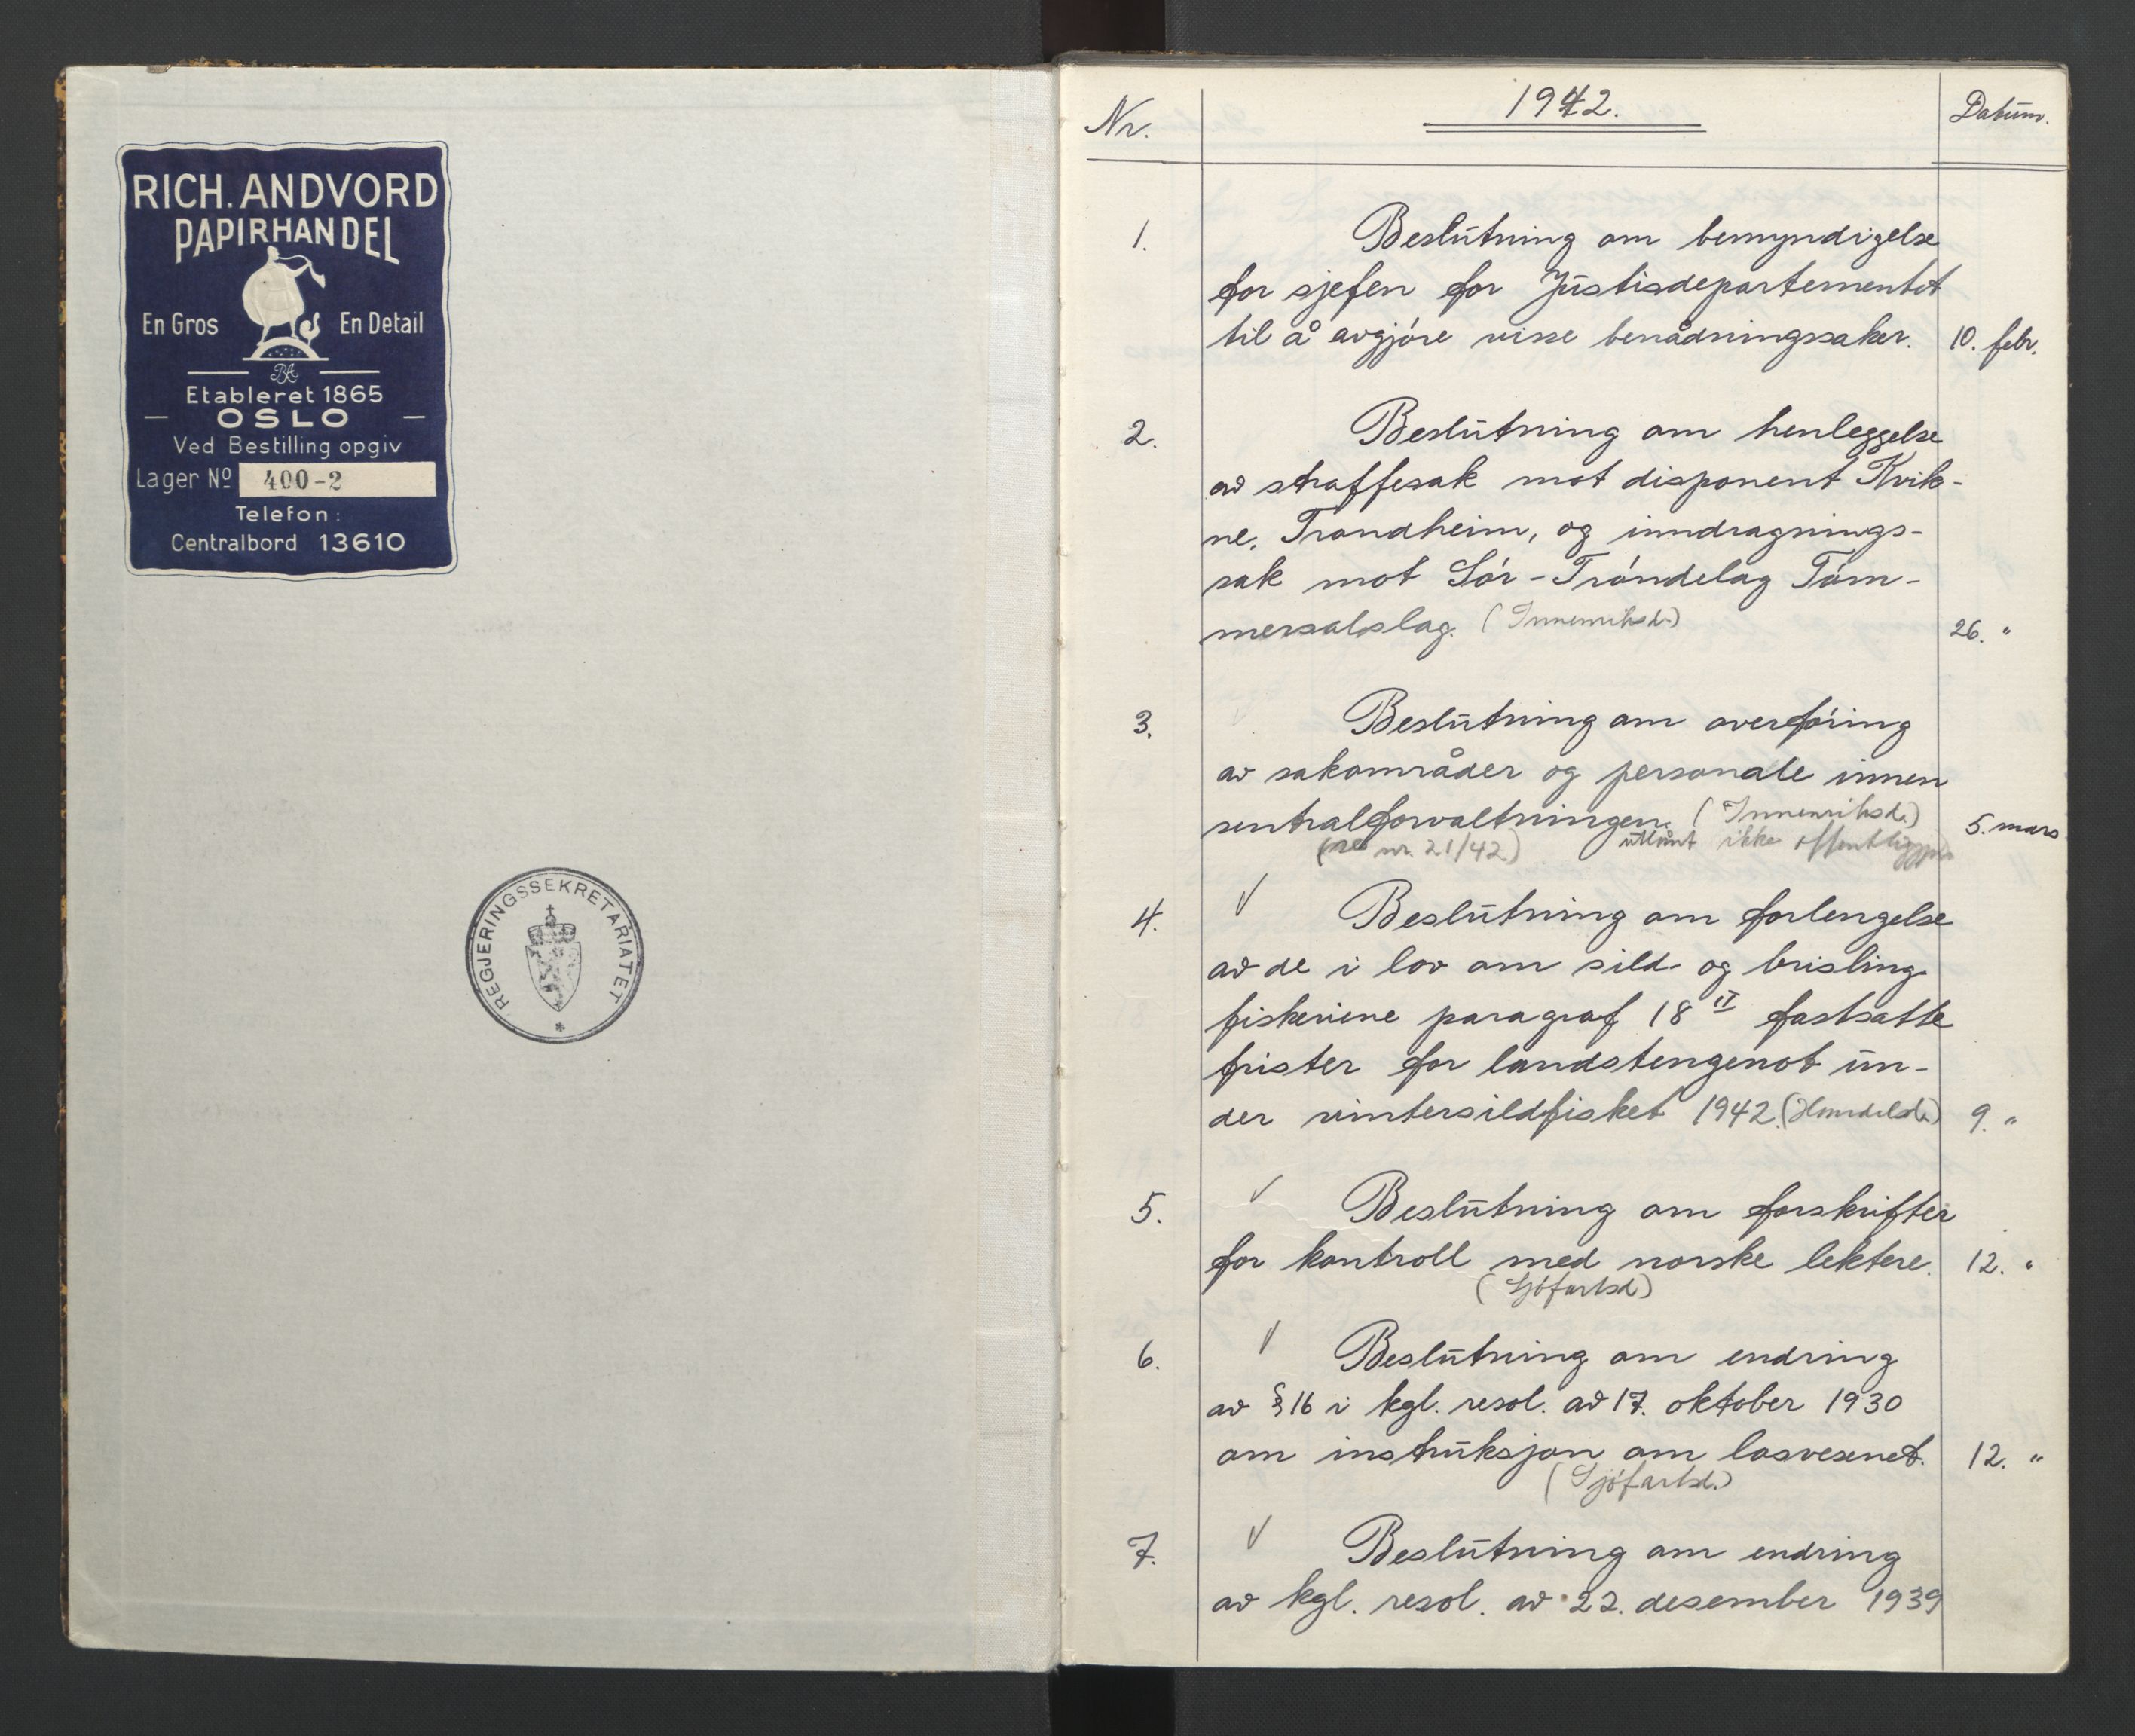 RICH. ANDVORD
PAPIRHANDEL
En Gros En Detail
RA
Etableret 1865
— OSLO —
Ved Bestilling opgiv
Lager Nº 400-2
Telefon:
Centralbord 13610
REGJERINGSSEKRETARIATET *
Nr. 1942. Datum.
1. Beslutning om bemyndigelse
for sjefen for Justisdepartementet
til å avgjøre visse benådningssaker. 10. febr.
2. Beslutning om henleggelse
av straffesak mot disponent Kvik-
ne, Trondheim, og inndragnings-
sak mot Sør-Trøndelag Tøm-
mersalslag. (Innenriksd.) 26. "
3. Beslutning om overføring
av sakområder og personale innen
sentralforvaltningen. (Innenriksd.) 5. mars
(se nr. 21/42) utlånt ikke
4. √ Beslutning om forlengelse
av de i lov om sild- og brisling-
fiskeriene paragraf 18 II fastsatte
frister for landstengenot un-
der vintersildfisket 1942. (Handelsd.) 9. "
5. √ Beslutning om forskrifter
for kontroll med norske lektere. 12. "
(Sjøfartsd.)
6. √ Beslutning om endring
av § 16 i kgl. resol. av 17. oktober 1930
om instruksjon om losvesenet. 12. "
(Sjøfartsd.)
7. √ Beslutning om endring
av kgl. resol. av 22. desember 1939